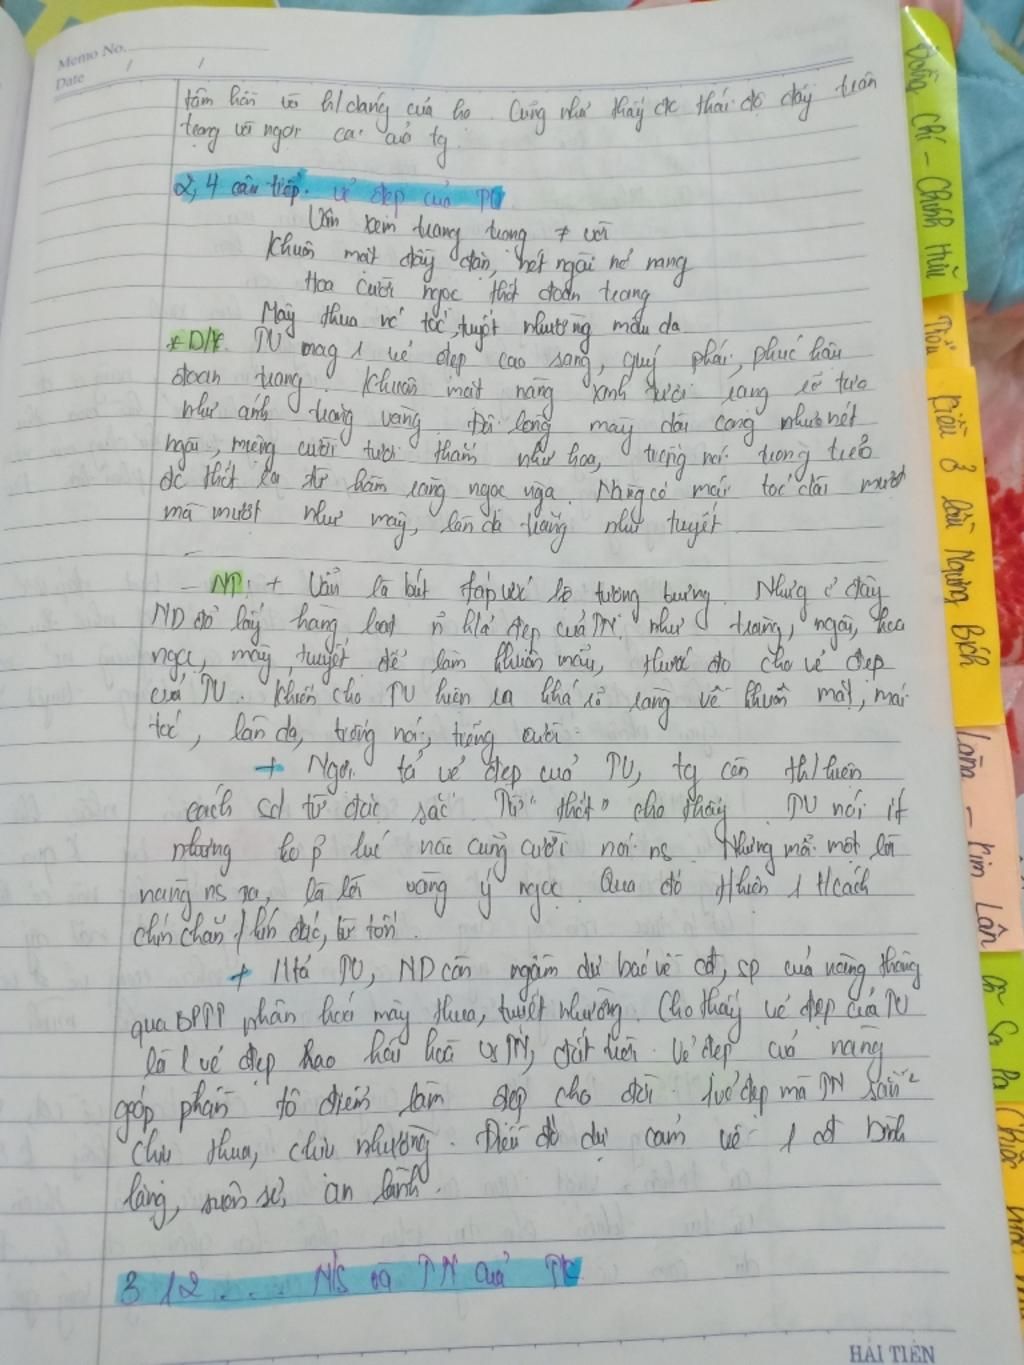 Memo No.
Date / /
tâm hồn và h/dáng của họ. Cũng như thấy đc thái độ đầy trân
trọng với ngợi ca của tg.
2, 4 câu tiếp. vẻ đẹp của TV
Vân xem trang trọng ≠ vời
Khuôn mặt đầy đặn, nét ngài nở nang
Hoa cười ngọc thốt đoan trang
Mây thua nước tóc, tuyết nhường màu da
* D/Y. TV mag 1 vẻ đẹp cao sang, quý phái, phúc hậu
đoan trang. Khuôn mặt nàng xinh tươi rạng rỡ tựa
như ánh trăng vàng. Đôi lông mày dài cong như nét
ngài, miệng cười tươi thắm như hoa, tiếng nói trong trẻo
đc thốt ra từ hàm răng ngọc ngà. Nàng có mái tóc dài mượt
mà mượt như mây, làn da trắng như tuyết
- NT: + Vẫn là bút pháp ước lệ tượng trưng. Nhưg ở đây
ND đã lấy hàng loạt n h/ả đẹp của TN như trăng, ngài, hoa
ngọc, mây, tuyết để làm khuôn mẫu, thước đo cho vẻ đẹp
của TV. Khiến cho TV hiện ra khá rõ ràng về khuôn mặt, mái
tóc, làn da, tiếng nói, tiếng cười.
+ Ngoài tả vẻ đẹp của TV, tg còn th/hiện
cách sd từ đặc sắc. Từ "thốt" cho thấy TV nói ít
nhưng ko p lúc nào cũng cười nói ns. Nhưng mỗi một lời
nàng ns ra, là lời vàng ý ngọc. Qua đó t/hiện 1 t/cách
chín chắn, kín đáo, từ tốn.
+ M tả TV, ND còn ngầm dự báo về cđ, sp của nàng thông
qua BPTT nhân hoá mây thua, tuyết nhường. Cho thấy vẻ đẹp của TV
là 1 vẻ đẹp hao hài hoà vs TN, đất trời. Vẻ đẹp của nàng
góp phần tô điểm làm đẹp cho đời. 1 vẻ đẹp mà TN sẵn²
chịu thua, chịu nhường. Điều đó dự cảm về 1 cđ bình
lặng, suôn sẻ, an lành.
3 12 .... N/S và TN của TK
HẢI TIẾN
Đồng Chí - Chính Hữu
Kiều ở lầu Ngưng Bích
Làng - Kim Lân